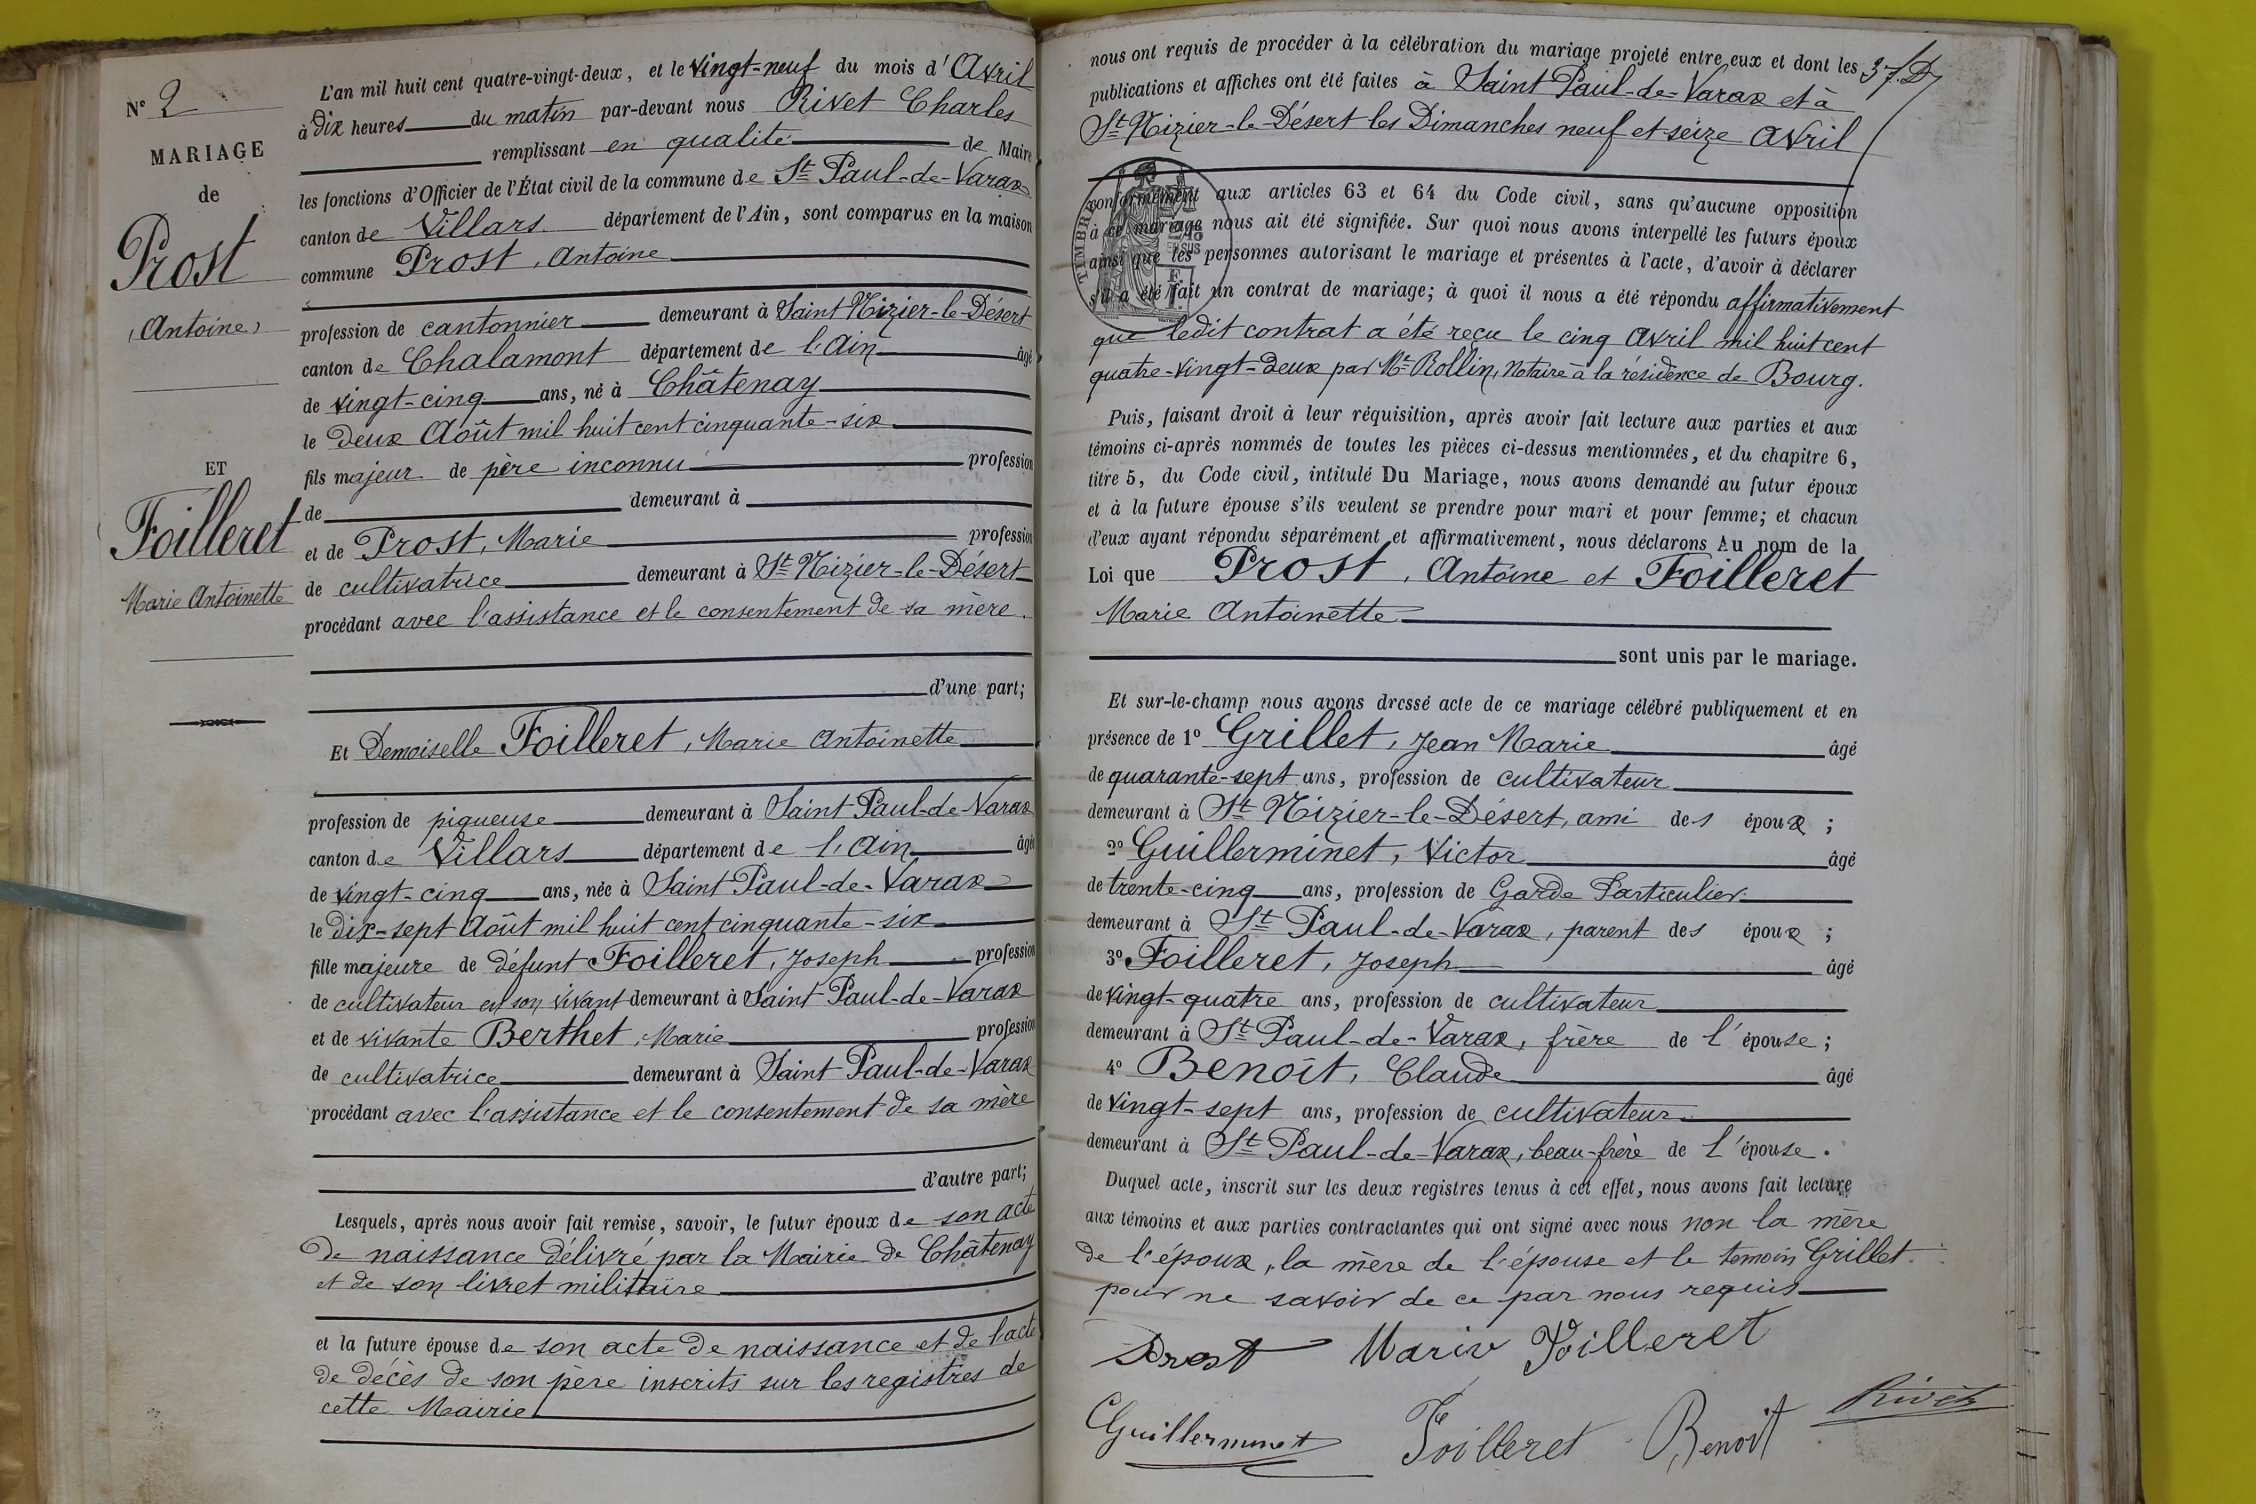 N° 2
MARIAGE
de
Prost
(Antoine)
ET
Foilleret
Marie Antoinette
L'an mil huit cent quatre-vingt-deux, et le vingt-neuf du mois d'Avril
à dix heures du matin par-devant nous Rivet Charles
remplissant en qualité de Maire
les fonctions d'Officier de l'État civil de la commune de St Paul-de-Varax
canton de Villars département de l'Ain, sont comparus en la maison
commune Prost, Antoine
profession de cantonnier demeurant à Saint Nizier-le-Désert
canton de Chalamont département de l'Ain âgé
de vingt-cinq ans, né à Châtenay
le deux Août mil huit cent cinquante-six
fils majeur de père inconnu profession
de demeurant à
et de Prost, Marie profession
de cultivatrice demeurant à St Nizier-le-Désert
procédant avec l'assistance et le consentement de sa mère.
d'une part;
Et Demoiselle Foilleret, Marie Antoinette
profession de piqueuse demeurant à Saint Paul-de-Varax
canton de Villars département de l'Ain âgée
de vingt-cinq ans, née à Saint Paul-de-Varax
le dix-sept Août mil huit cent cinquante-six
fille majeure de défunt Foilleret, Joseph profession
de cultivateur en son vivant demeurant à Saint Paul-de-Varax
et de vivante Berthet, Marie profession
de cultivatrice demeurant à Saint Paul-de-Varax
procédant avec l'assistance et le consentement de sa mère
d'autre part;
Lesquels, après nous avoir fait remise, savoir, le futur époux de son acte
de naissance délivré par la Mairie de Châtenay
et de son livret militaire
et la future épouse de son acte de naissance et de l'acte
de décès de son père inscrits sur les registres de
cette Mairie
nous ont requis de procéder à la célébration du mariage projeté entre eux et dont les
publications et affiches ont été faites à Saint Paul-de-Varax et à
St Nizier-le-Désert les Dimanches neuf et seize Avril
conformément aux articles 63 et 64 du Code civil, sans qu'aucune opposition
à ce mariage nous ait été signifiée. Sur quoi nous avons interpellé les futurs époux
ainsi que les personnes autorisant le mariage et présentes à l'acte, d'avoir à déclarer
s'il a été fait un contrat de mariage; à quoi il nous a été répondu affirmativement
que ledit contrat a été reçu le cinq Avril mil huit cent
quatre-vingt-deux par Me Rollin, Notaire à la résidence de Bourg.
Puis, faisant droit à leur réquisition, après avoir fait lecture aux parties et aux
témoins ci-après nommés de toutes les pièces ci-dessus mentionnées, et du chapitre 6,
titre 5, du Code civil, intitulé Du Mariage, nous avons demandé au futur époux
et à la future épouse s'ils veulent se prendre pour mari et pour femme; et chacun
d'eux ayant répondu séparément et affirmativement, nous déclarons Au nom de la
Loi que Prost, Antoine et Foilleret
Marie Antoinette
sont unis par le mariage.
Et sur-le-champ nous avons dressé acte de ce mariage célébré publiquement et en
présence de 1° Grillet, Jean Marie âgé
de quarante-sept ans, profession de cultivateur
demeurant à St Nizier-le-Désert, ami des époux;
2° Guillerminet, Victor âgé
de trente-cinq ans, profession de Garde Particulier
demeurant à St Paul-de-Varax, parent des époux;
3° Foilleret, Joseph âgé
de vingt-quatre ans, profession de cultivateur
demeurant à St Paul-de-Varax, frère de l'épouse;
4° Benoît, Claude âgé
de vingt-sept ans, profession de cultivateur
demeurant à St Paul-de-Varax, beau-frère de l'épouse.
Duquel acte, inscrit sur les deux registres tenus à cet effet, nous avons fait lecture
aux témoins et aux parties contractantes qui ont signé avec nous non la mère
de l'époux, la mère de l'épouse et le temoin Grillet.
pour ne savoir de ce par nous requis
Prost Marie Foilleret
Guillerminet Foilleret Benoit Rivet
TIMBRE